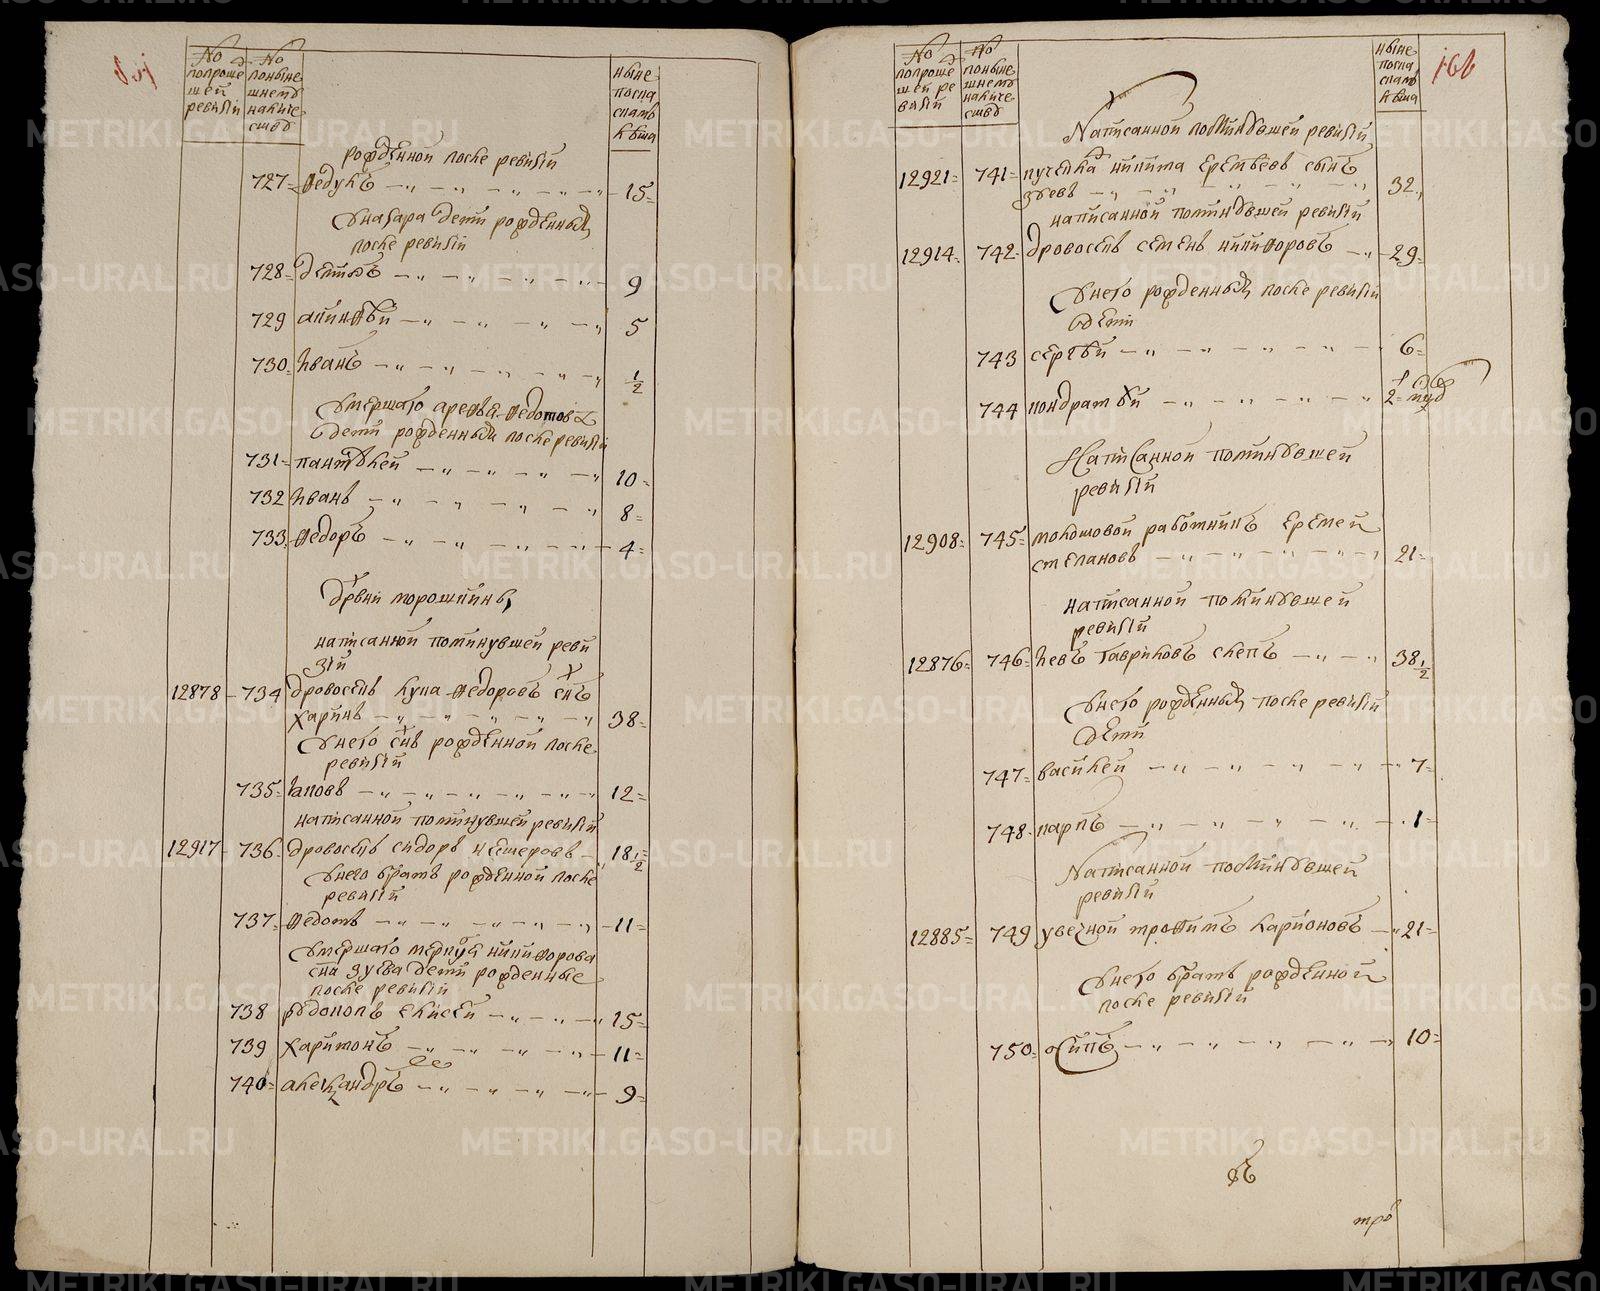 No попрошешей ревизии
No поныне шнему наличеству
ныне поспа спамъ в вша
рожденной после ревизии
727 Федулъ 15
У назара дети рожденныя
после ревизии
728 9
729 5
730 Иванъ 1/2
умершаго арефья Федотова
дети рожденныя после ревизии
731 пантелей 10
732 Иванъ 8
733 Федоръ 4
дрвни
написанной поминувшей реви
зии
12878 734 дровосекъ лука Федоровъ снъ
харинъ 38
У него снъ рожденной после
ревизии
735 Iаковъ 12
написанной поминувшей ревизии
12917 736 дровосекъ сидоръ 18 1/2
У него братъ рожденной после
ревизии
737 Федотъ 11
Умершаго никифорова
сна зуева дети рожденные
после ревизии
738 елисей 15
739 харитонъ 11
740 александръ 9
No попроше шей ре визии
No поныне шнему наличе ству
166
Написанной поминувшей ревизии
12921 741 никита еремеевъ сынъ
зуевъ 32
написанной поминувшей ревизии
12914 742 дровосекъ семенъ никифоровъ 29
У него рожденныя после ревизии
дети
743 сергей 6
744 кондратей 1/2
Написанной поминувшей
ревизии
12908 745 работникъ еремей
степановъ 21
написанной поминувшей
ревизии
12876 746 левъ гавриловъ слепъ 38 1/2
У него рожденныя после ревизии
дети
747 василей 7
748 карпъ 1
Написанной поминувшей
ревизии
12885 749 увечной трофимъ ларионовъ 21
У него братъ рожденной
после ревизии
750 осипъ 10
METRIKI.GASO-URAL.RU